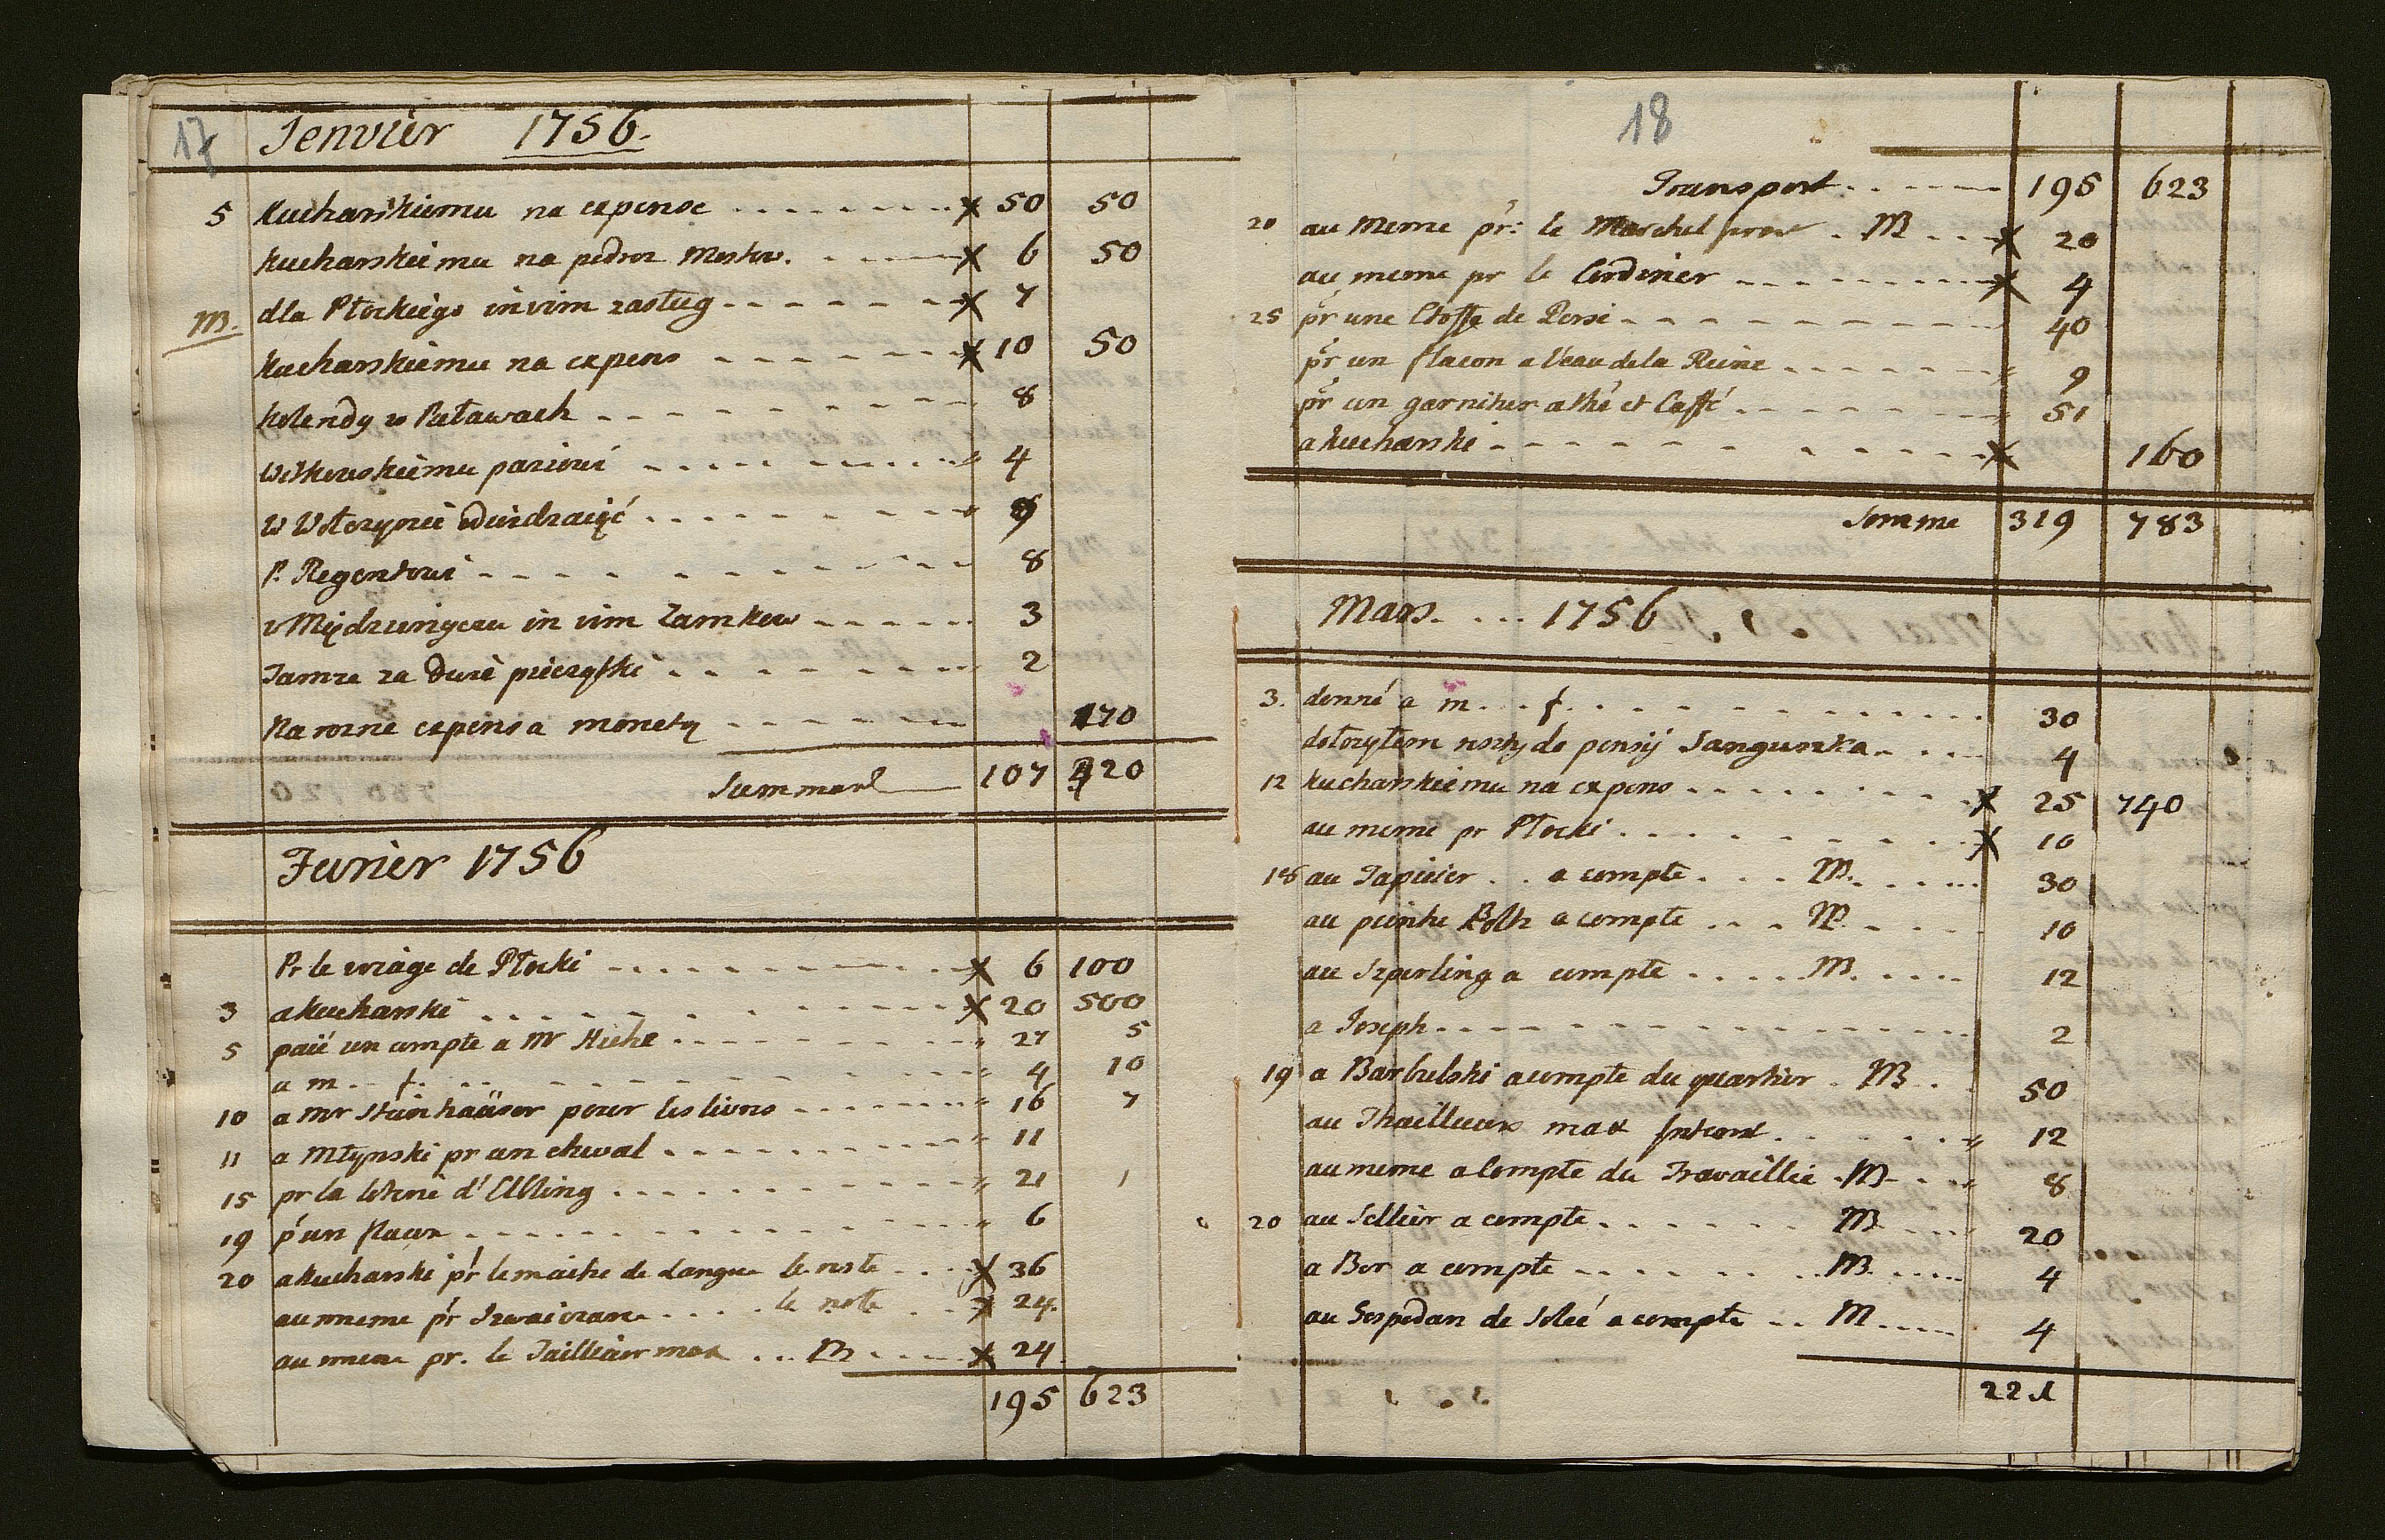 17 Jenvier 1756.
5 Kucharskiemu na expense X 50 50
Kucharskiemu na podroz Moskw. X 6 50
M. dla Płockiego in vim zasług X 7
Kucharskiemu na expens X 10 50
Kolendy w Puławach 8
Witkowskiemu paziowi 4
w Wołczynie 9
P. Regentowi 8
w Międzurzyczu in vim Zamkow 3
Tamze za dwie pieczątki 2
Na rozne expensa monetą 170
Summa 107 420
Fevrier 1756
Pr le voiage de Płocki X 6 100
3 a Kucharski X 20 500
5 paié un compte a Mr Hiehe 27 5
a m . . f. 4 10
10 a Mr Steinhaüser pour les livres 16 7
11 a Młynski pr un cheval 11
15 pr la loterie d'Elbling 21 1
19 p'un flacon 6
20 a Kucharski pr le maitre de Langue le reste X 36
au meme pr le reste X 24.
au meme pr. le Tailliair max . . . M X 24
195 623
18
Transport 195 623
20 au Meme pr: le Marchel . M X 20
au meme pr le Cordonier X 4
25 pr une Etoffe de Persi 40
pr un flacon a l'eau de la Reine 9
pr un garnitur a thé et Caffé 51
a Kucharski X 160
Somme 319 783
Mars. . . . 1756
3. donné a m . . . f. 30
dołozyłem reszty do pensij Sanguszka 4
12 Kucharskiemu na expens X 25 740
au meme pr Płocki X 10
18 au Tapicier . . a compte . . . M. 30
au peintre Boltz a compte . . . M. 10
au Szperling a compte . . . . M. 12
a Joseph 2
19 a Barbulski a compte du quartier . M . 50
au Thailleur max 12
au meme a Compte du Travaillie . M 8
20 au Sellier a compte M 20
a Bor a compte M. 4
au de Solée a compte . . M 4
221